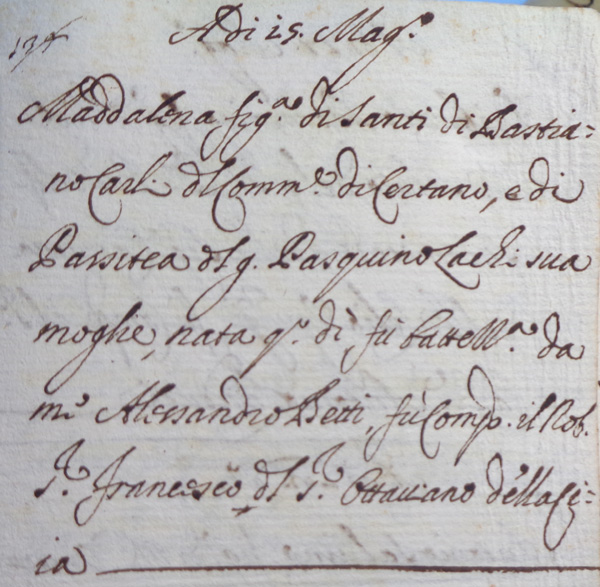 Adi 25. Mag.º
Maddalena fig.ª di Santi di Bastia=
no Carli del Comm.e di Certano, e di
Passitea del q. Pasquino Lachi sua
moglie, nata q.º dì, fù battezz.ª da
me Alessandro Betti, fù Comp. il Nob.
S.r Francesco del S.r Ottaviano della Ci=
ia